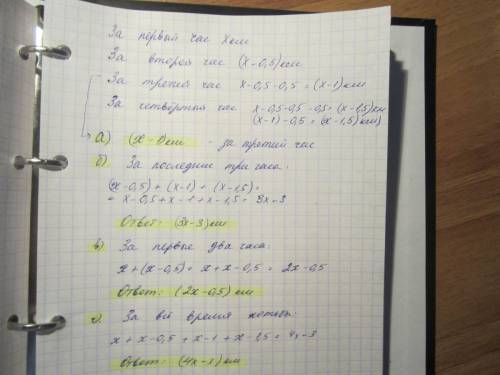 За первый час x км
За второй час (x-0,5) км
За третий час x-0,5-0,5 = (x-1) км
За четвёртый час x-0,5-0,5-0,5 = (x-1,5) км
(x-1)-0,5 = (x-1,5) км)
а) (x-1) км - за третий час
б) За последние три часа:
(x-0,5) + (x-1) + (x-1,5) =
= x-0,5+x-1+x-1,5 = 3x-3
Ответ: (3x-3) км
в) За первые два часа:
x+(x-0,5) = x+x-0,5 = 2x-0,5
Ответ: (2x-0,5) км
г) За всё время
x+x-0,5+x-1+x-1,5 = 4x-3
Ответ: (4x-3) км